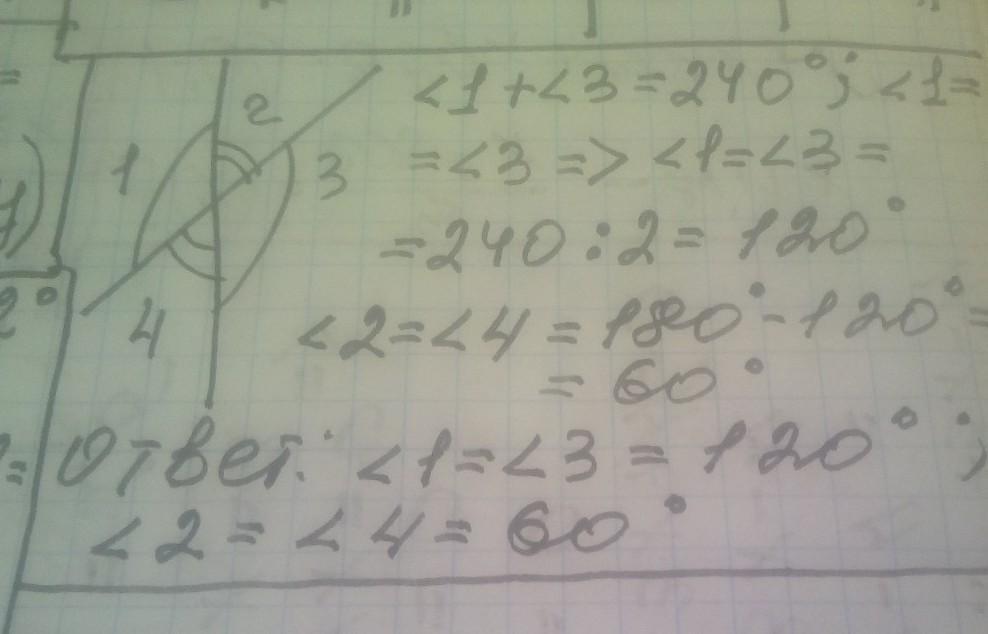 2
1
3
4
<1+<3=240°; <1=
=<3 => <1=<3=
=240:2= 120°
<2=<4 = 180°-120°=
= 60°
Ответ: <1=<3 = 120°;
<2 = <4 = 60°
2°